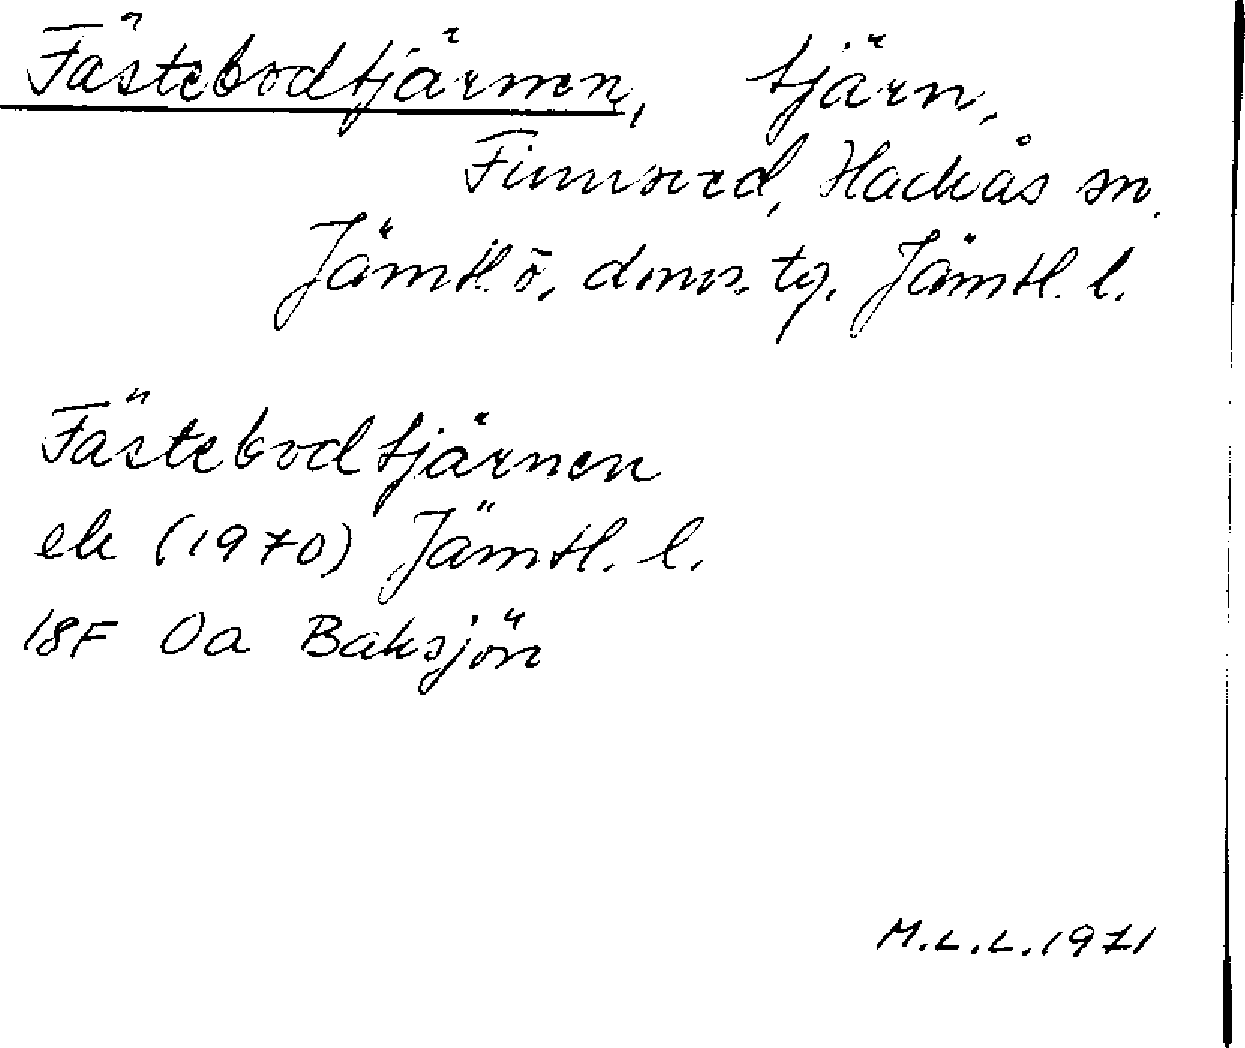 Fästebodtjärnen, tjärn,
Finnsved, Hackås sn.
Jämtl. ö. doms. tg. Jämtl. l.
Fästebodtjärnen
ek (1970) Jämtl. l.
18F 0a Baksjön
M.L.L. 1971